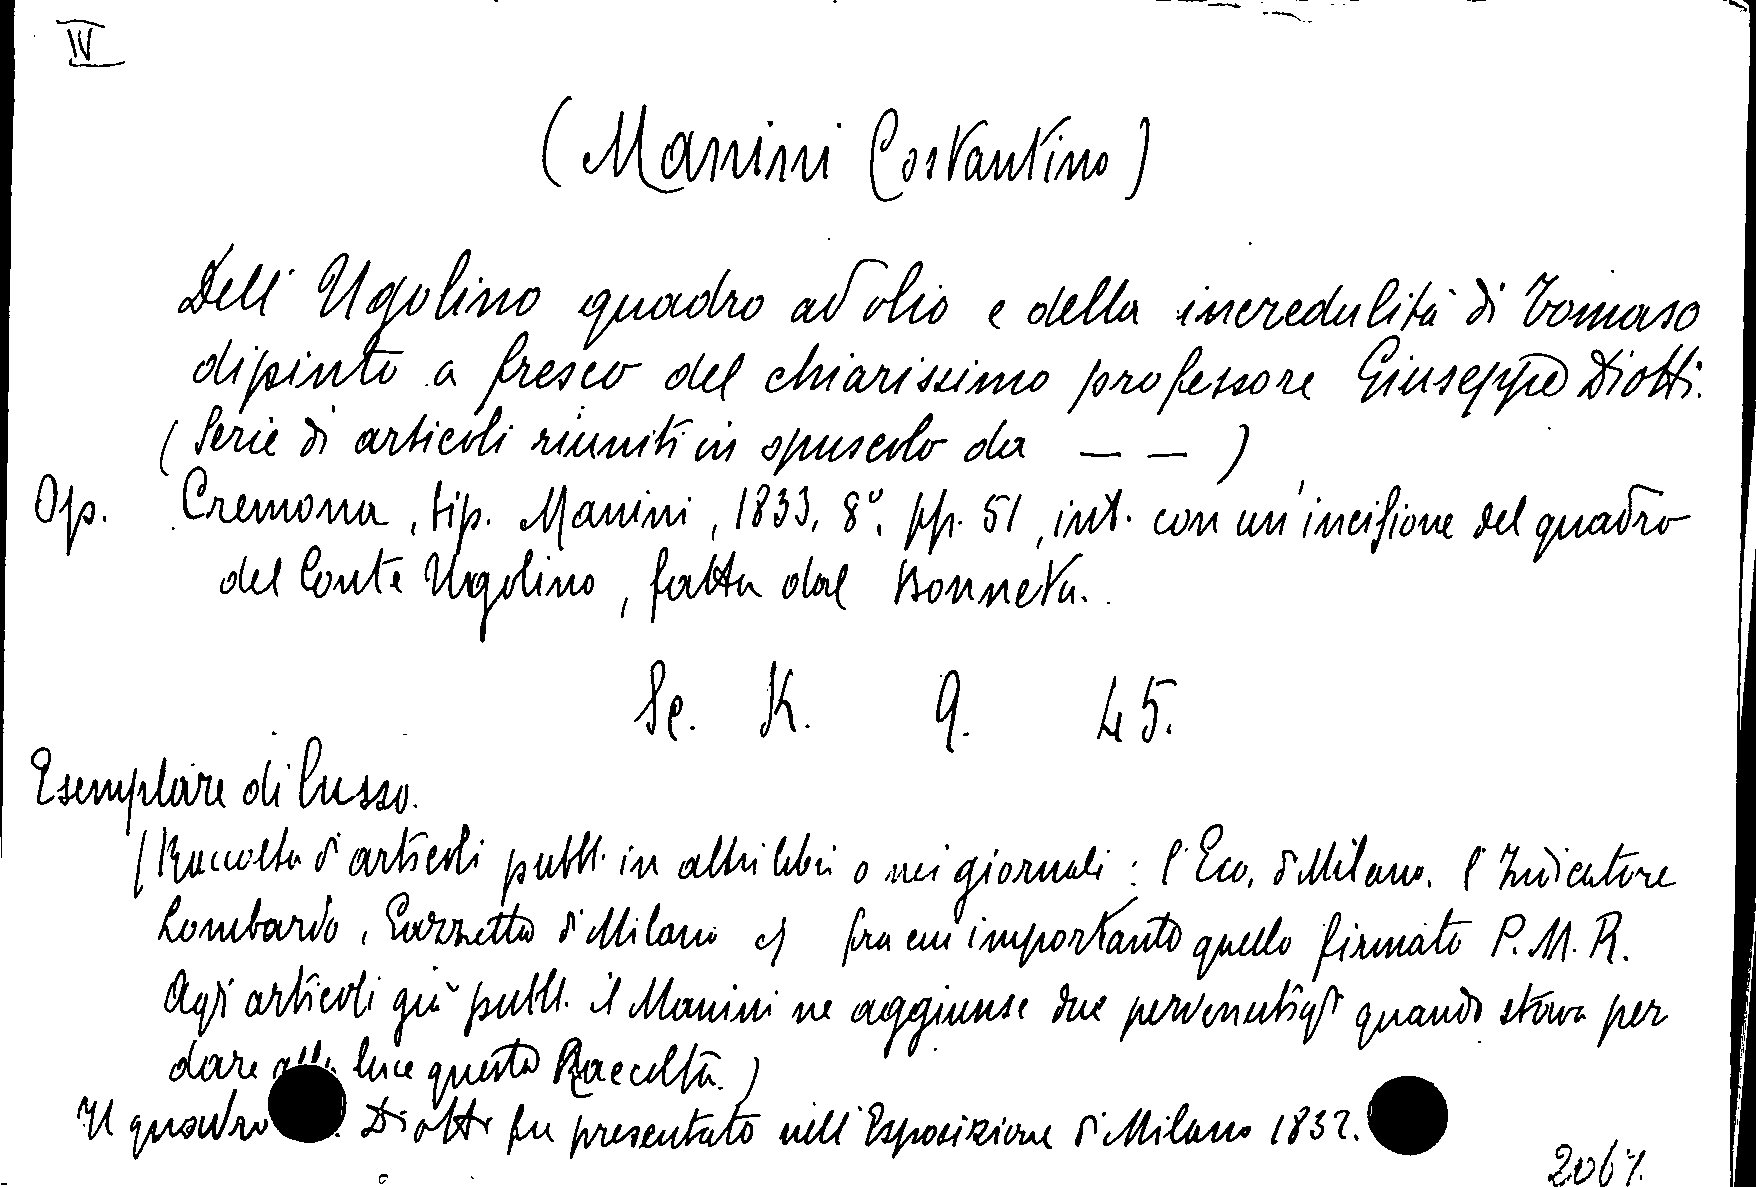 IV
(Manini Costantino)
Dell' Ugolino quadro ad olio e della incredulità di Tomaso
dipinto a fresco del chiarissimo professore Giuseppe Diotti.
(Serie di articoli riuniti in opuscolo da — — )
Op. Cremona, tip. Manini, 1833, 8°, pp. 51, int. con un'incisione del quadro
del Conte Ugolino, fatta dal Bonneta.
Se. K. 9. 45.
Esemplare di lusso.
(Raccolta di articoli pubbl. in altri libri o nei giornali: l'Eco, di Milano, l'Indicatore
Lombardo, Gazzetta di Milano fra cui importante quello firmato P. M. R.
Agli articoli già pubbl. il Manini ne aggiunse due pervenutigli quando stava per
dare alla luce questa Raccolta.)
Il quadro Diotti fu presentato nell'Esposizione di Milano 1832.